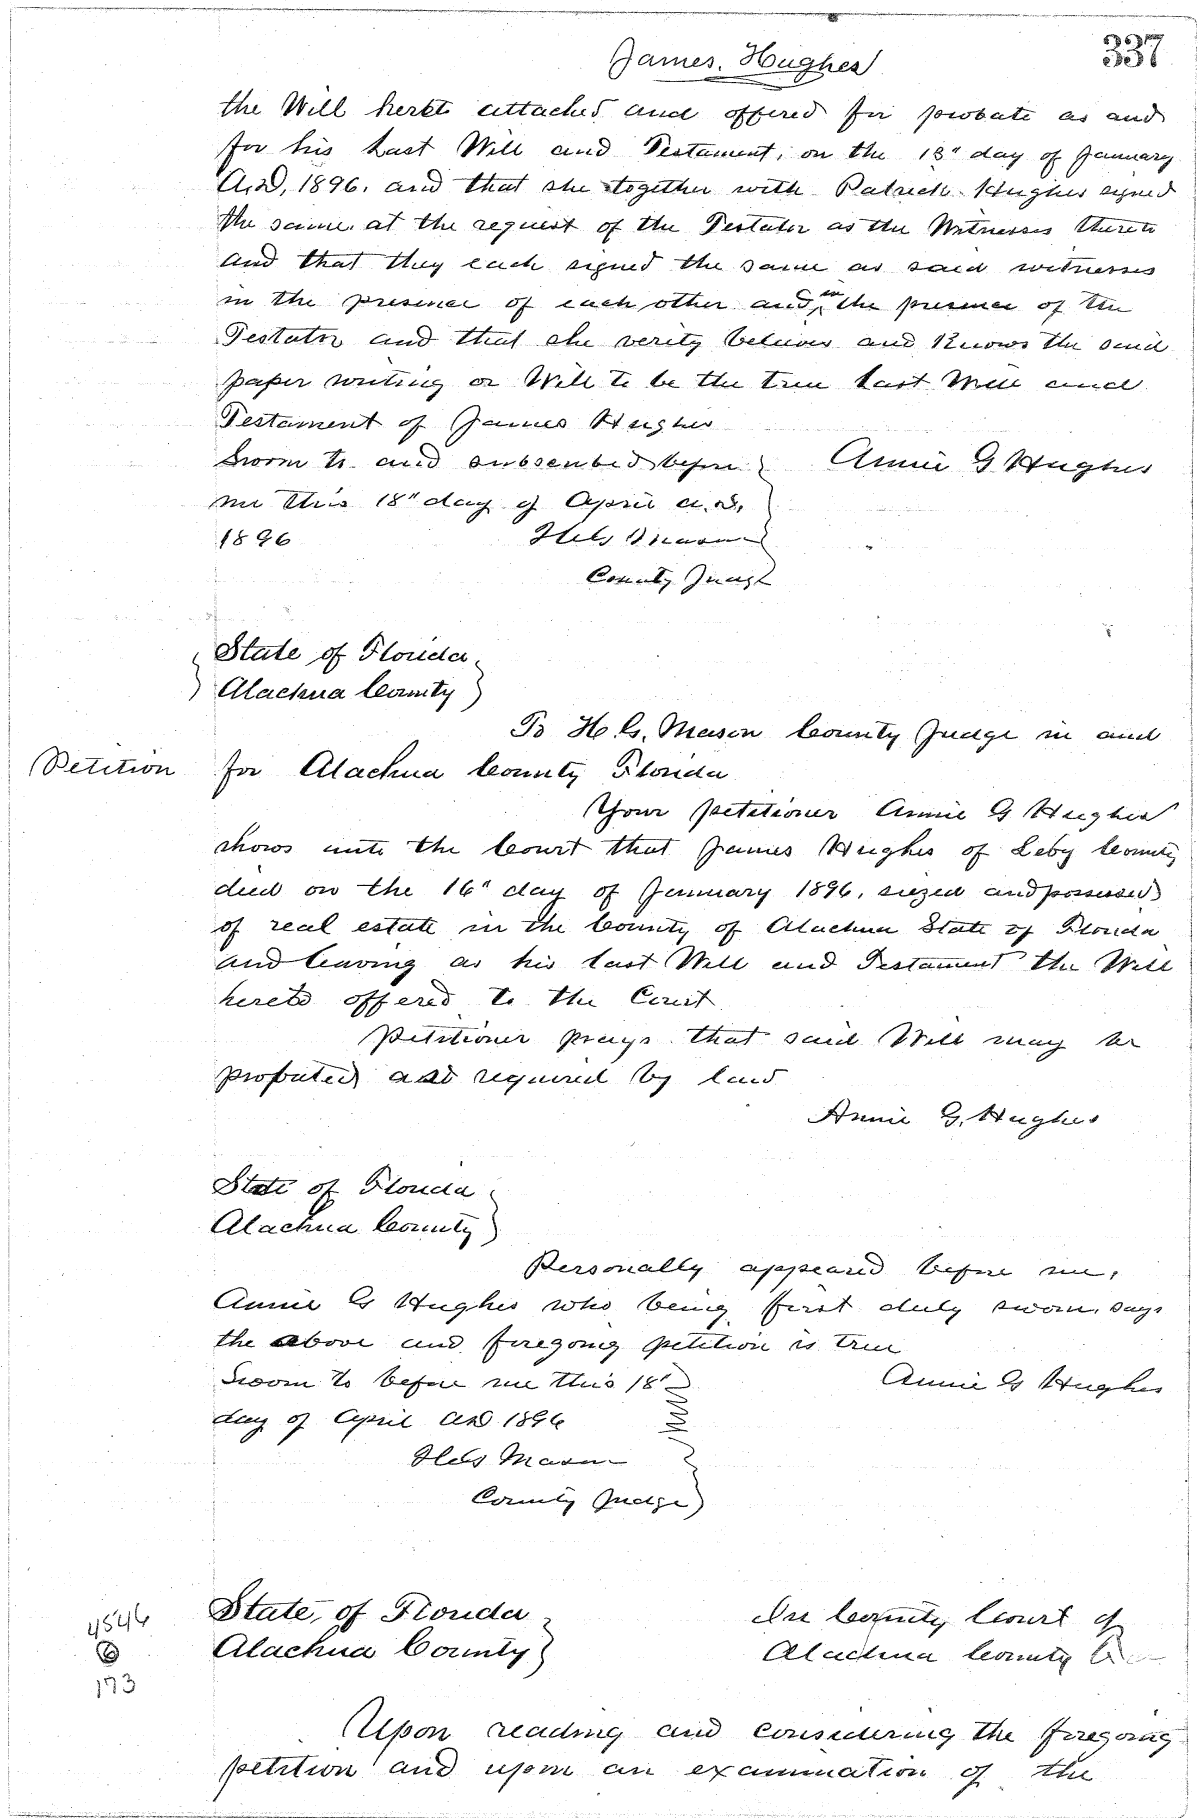 337
James. Hughes
the Will hereto attached and offered for probate as and
for his Last Will and Testament, on the 13" day of January
A.D, 1896. and that she together with Patrick Hughes signed
the same. at the request of the Testator as the Witnesses thereto
and that they each signed the same as said witnesses
in the presence of each other and in the presence of the
Testator and that she verily believes and Knows the said
paper writing or Will to be the true Last Will and
Testament of James Hughes
Sworn to and subscribed before Annie G Hughes
me this 18" day of April A.D.
1896 H.C. Mason
County Judge
State of Florida
Alachua County
To H.G. Mason County Judge in and
Petition for Alachua County Florida
Your petitioner Annie G Hughes
shows unto the Court that James Hughes of Leby County
died on the 16" day of January 1896. siezed and possessed
of real estate in the County of Alachua State of Florida
and leaving as his last Will and Testament the Will
hereto offered to the Court
Petitioner prays that said Will may be
probated as required by law
Annie G. Hughes
State of Florida
Alachua County
Personally appeared before me,
Annie G Hughes who being first duly sworn, says
the above and foregoing petition is true
Sworn to before me this 18" Annie G Hughes
day of April AD 1896
Mason
County Judge
4546 State, of Florida In County Court of
@ Alachua County Alachua County
173
Upon reading and considering the foregoing
petition and upon an examination of the